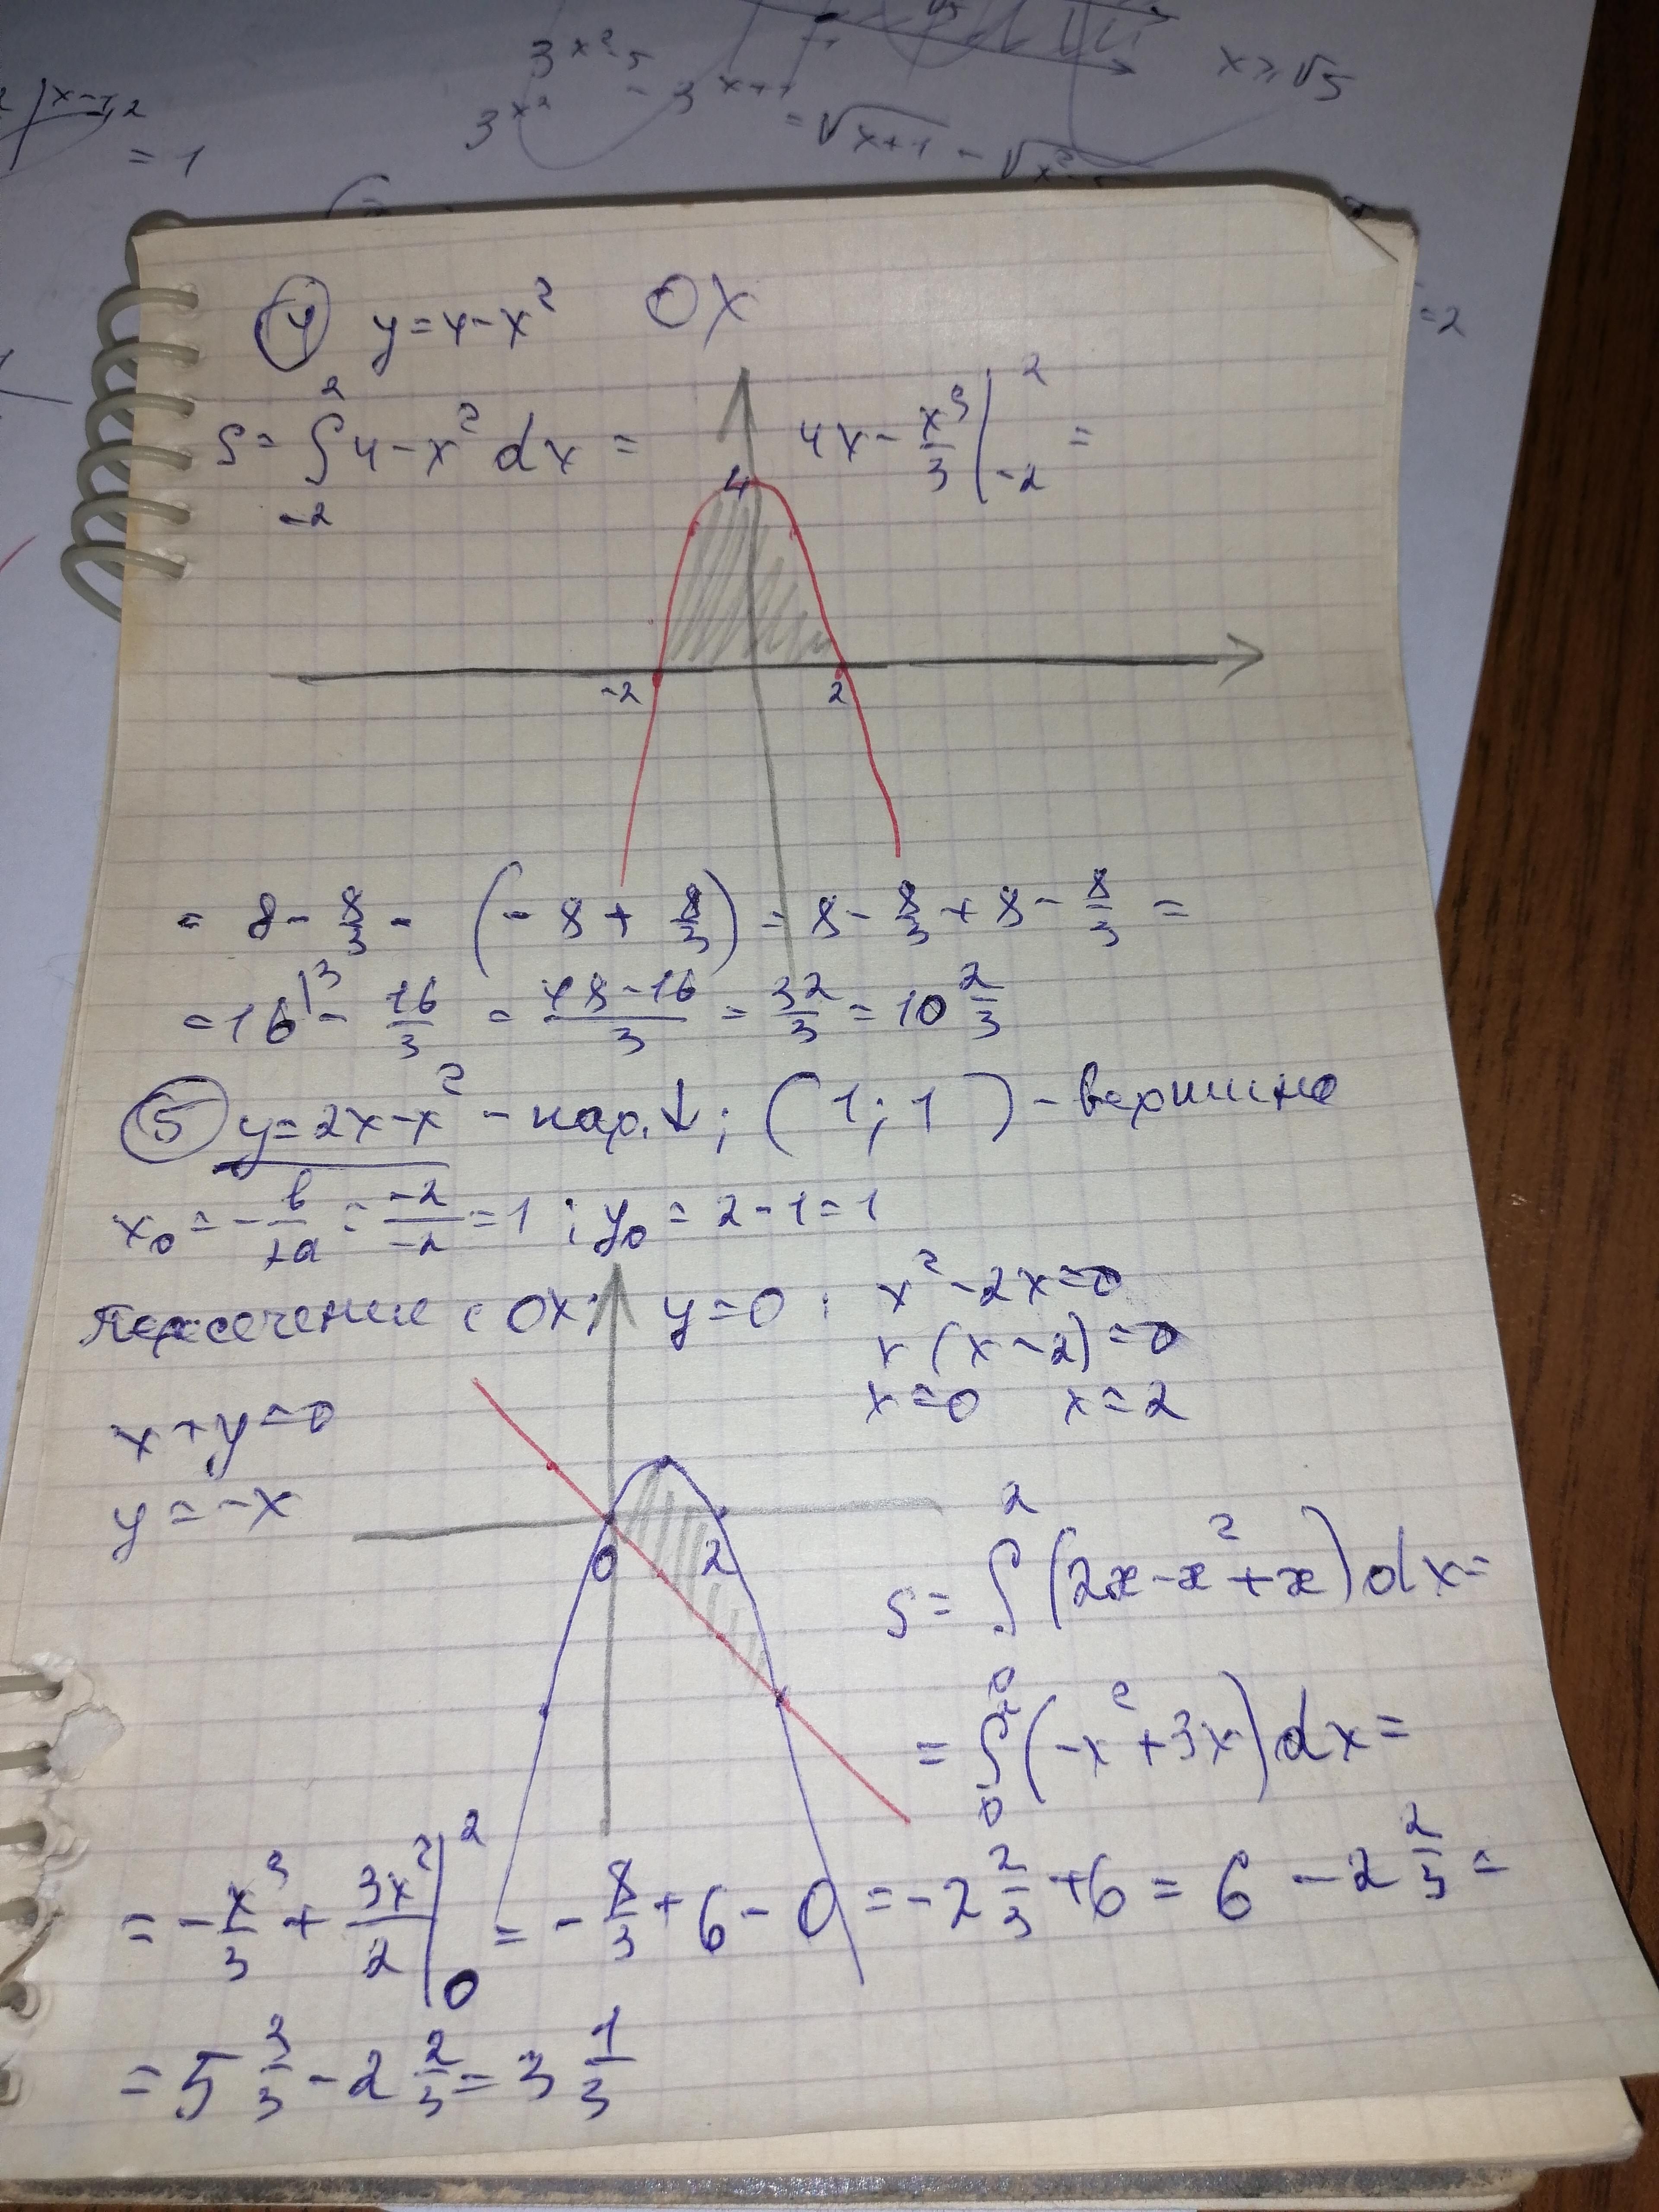 3^{x²-5}
3^{x²} - 3^{x+1} = √(x+1) - √(x²
x ≥ √5
= 1
=2
④ y=4-x² OX
S= ∫_{-2}^{2} 4-x² dx = 4x - x³/3 |_{-2}^{2} =
4
-2 2
= 8 - 8/3 - (-8 + 8/3) = 8 - 8/3 + 8 - 8/3 =
= 16^{\3} - 16/3 = (48-16)/3 = 32/3 = 10 2/3
⑤ y=2x-x² - пар.↓; (1;1) - вершина
x₀ = -b/2a = -2/-2 = 1 ; y₀ = 2-1=1
Пересечение с OX: y=0 : x²-2x=0
x(x-2)=0
x=0 x=2
x+y=0
y=-x
0 2
S= ∫_{0}^{2} (2x-x²+x)dx=
= ∫_{0}^{2} (-x²+3x)dx=
= -x³/3 + 3x²/2 |_{0}^{2} = -8/3 + 6 - 0 = -2 2/3 + 6 = 6 - 2 2/3 =
= 5 3/3 - 2 2/3 = 3 1/3